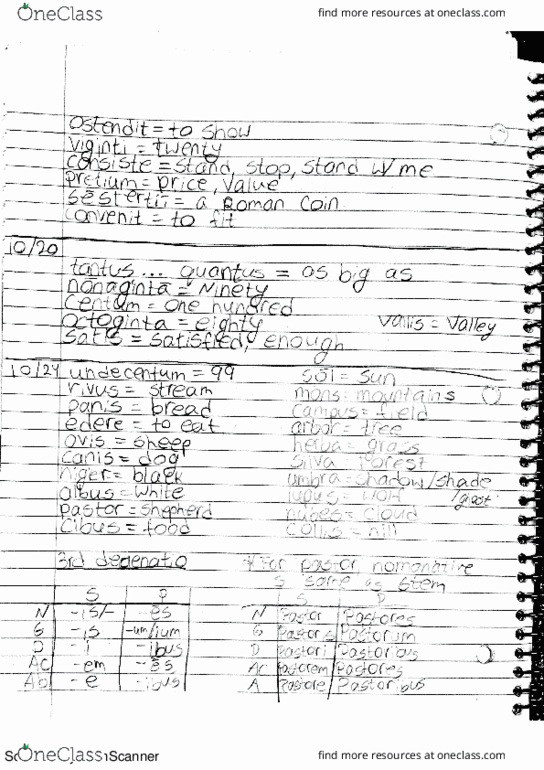 OneClass
find more resources at oneclass.com
ostendit = to show
viginti = twenty
consiste = stand, stop, stand w/ me
pretium = price, value
sēstertiī = a Roman coin
convenit = to fit
10/20
tantus ... quantus = as big as
nonaginta = Ninety
Centum = one hundred
octoginta = eighty
Vallis = Valley
Satis = satisfied, enough
10/24 undecentum = 99
sōl = sun
rivus = stream
mons = mountains
panis = bread
campus = field
edere = to eat
arbor = tree
ovis = sheep
herba = grass
canis = dog
silva forest
niger = black
umbra = shadow/shade
/ghost
albus = white
lupus = wolf
pastor = shepherd
nubes = cloud
cibus = food
collis = hill
3rd degenatio
* for pastor nomanative
S same as stem
S P
S P
N -is/- -ēs
N Pastor Pastores
G -is -um/ium
G Pastoris Pastorum
D -i -ibus
D Pastori Pastoribus
Ac -em -ēs
Ac Pastorem Pastores
Ab -e -ibus
A Pastore Pastoribus
OneClass
Scanner
find more resources at oneclass.com